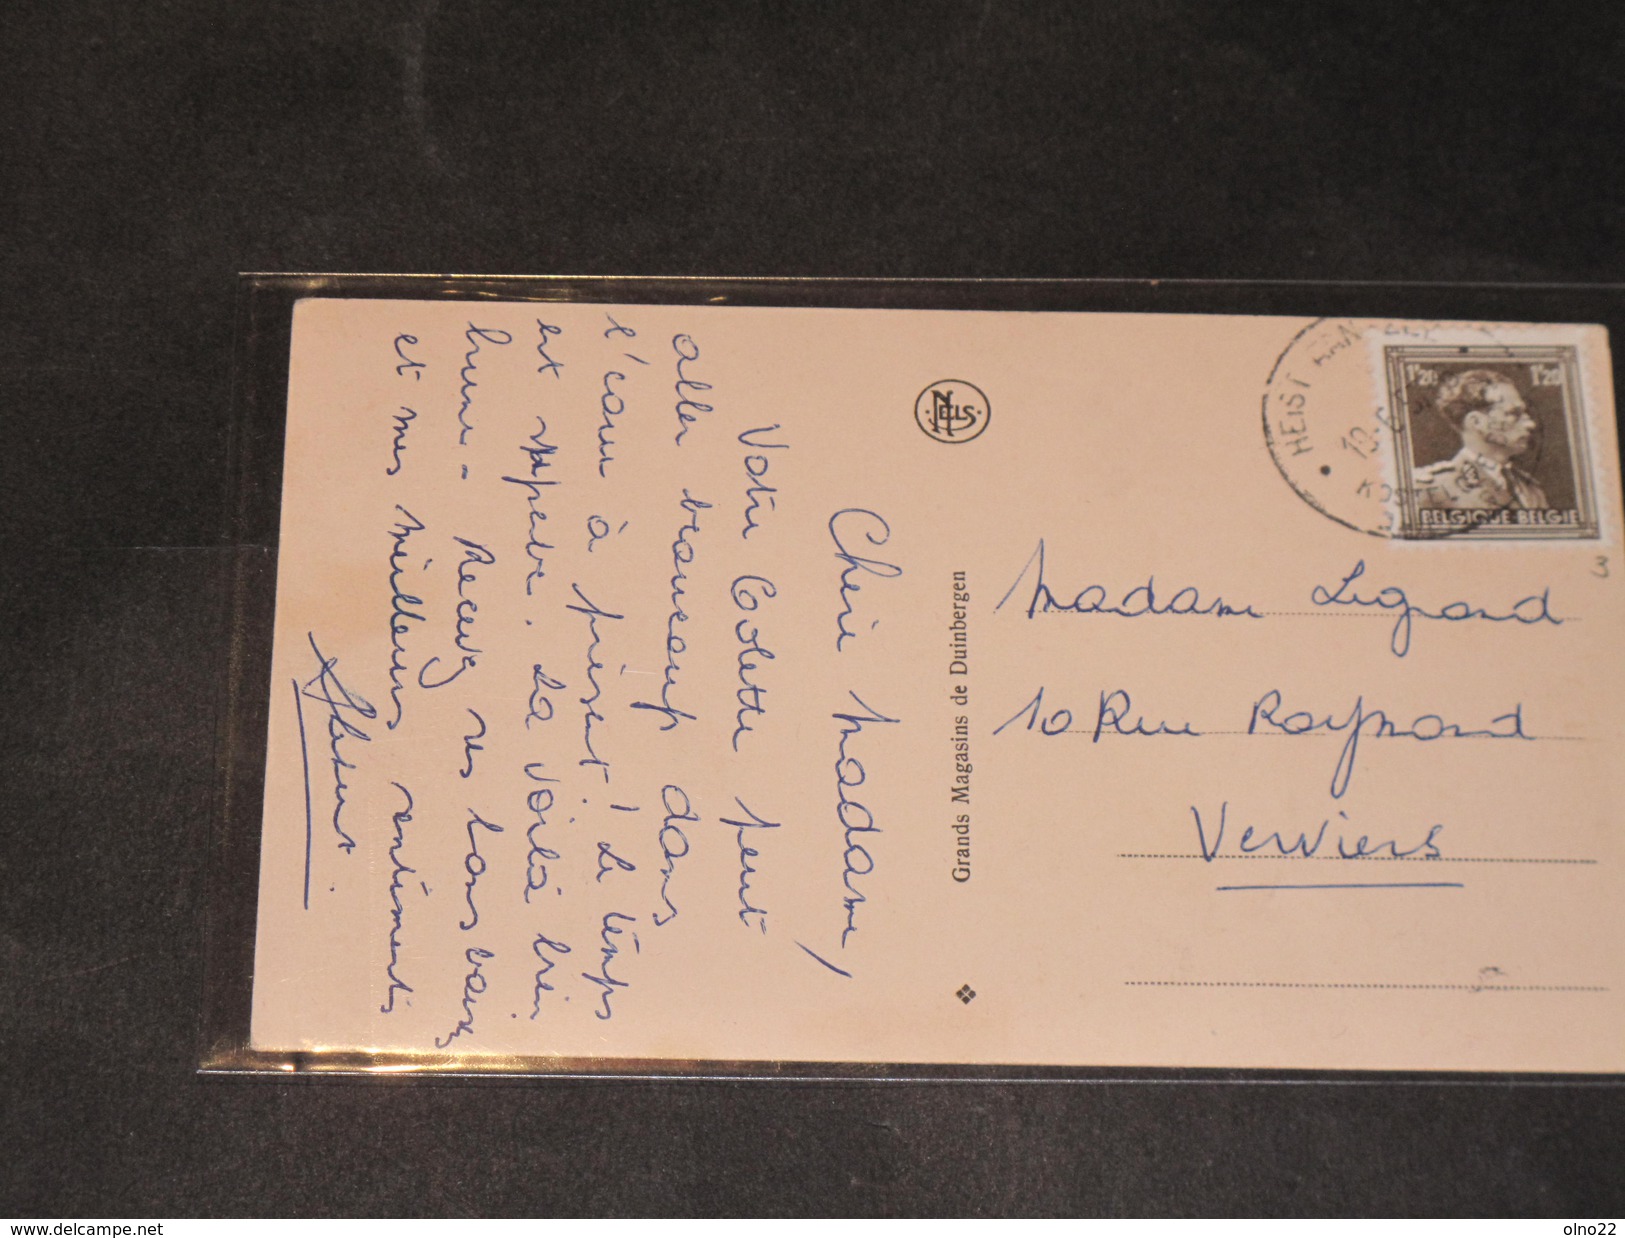 Chère Madame,
Votre Colette peut
aller beaucoup dans
l'eau à présent! Le temps
est superbe. La voilà bien
brune - Recevez ses bons baisers
et mes meilleurs sentiments
NELS
Grands Magasins de Duinbergen
HEIST
1F20 1F20
BELGIQUE BELGIE
Madame Legrand
10 Rue Raymond
Verviers
3
www.delcampe.net
olno22